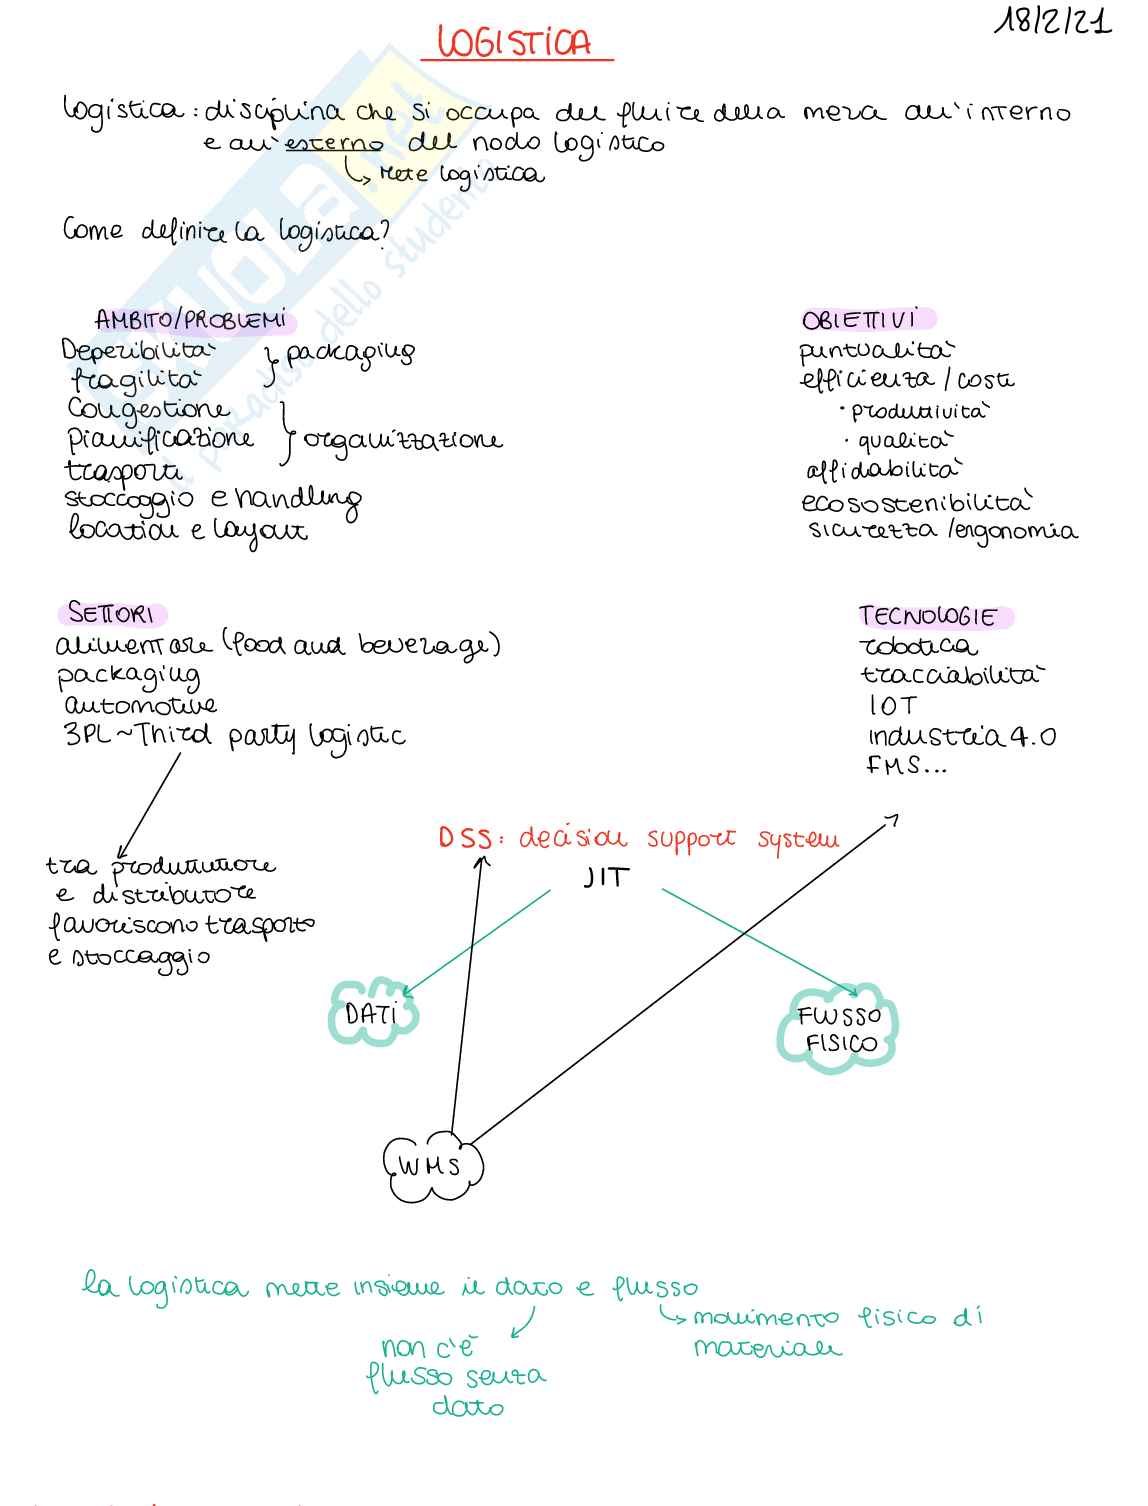 18/2/21
LOGISTICA
logistica: disciplina che si occupa del fluire della merce all'interno
e all'esterno del nodo logistico
↳ rete logistica
Come definire la logistica?
AMBITO/PROBLEMI
Deperibilità
fragilità
} packaging
Congestione
pianificazione
trasporti
} organizzazione
stoccaggio e handling
location e layout
OBIETTIVI
puntualità
efficienza / costi
· produttività
· qualità
affidabilità
ecosostenibilità
sicurezza /ergonomia
SETTORI
alimentare (food and beverage)
packaging
automotive
3PL ~ Third party logistic
tra produttore
e distributore
favoriscono trasporto
e stoccaggio
TECNOLOGIE
robotica
tracciabilità
IOT
industria 4.0
FMS...
DSS: decision support system
JIT
DATI
FLUSSO
FISICO
WMS
la logistica mette insieme il dato e flusso
↳ movimento fisico di
materiale
non c'è
flusso senza
dato
skuola.net
il paradiso dello studente